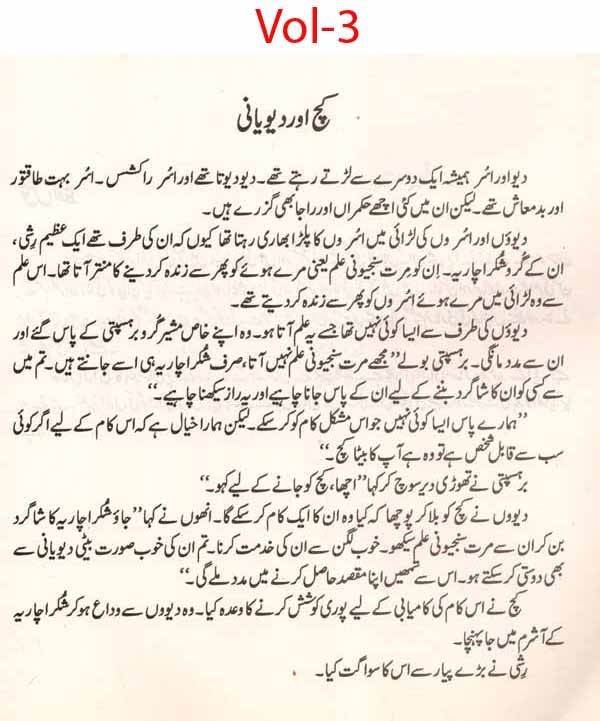 Vol-3
کچ اور دیویانی
دیو اور اسُر ہمیشہ ایک دوسرے سے لڑتے رہتے تھے۔ دیو دیوتا تھے اور اسُر راکشس۔ اسُر بہت طاقتور
اور بدمعاش تھے۔ لیکن ان میں کئی اچھے حکمراں اور راجا بھی گزرے ہیں۔
دیوؤں اور اسُروں کی لڑائی میں اسُروں کا پلڑا بھاری رہتا تھا کیوں کہ ان کی طرف تھے ایک عظیم رِشی،
ان کے گُرو شکراچاریہ۔ اِن کو مرت سنجیونی علم یعنی مرے ہوئے کو پھر سے زندہ کر دینے کا منتر آتا تھا۔ اس علم
سے وہ لڑائی میں مرے ہوئے اسُروں کو پھر سے زندہ کر دیتے تھے۔
دیوؤں کی طرف سے ایسا کوئی نہیں تھا جسے یہ علم آتا ہو۔ وہ اپنے خاص مشیر گرو برہسپتی کے پاس گئے اور
ان سے مدد مانگی۔ برہسپتی بولے ”مجھے مرت سنجیونی علم نہیں آتا، صرف شکراچاریہ ہی اسے جانتے ہیں۔ تم میں
سے کسی کو ان کا شاگرد بننے کے لیے ان کے پاس جانا چاہیے اور یہ راز سیکھنا چاہیے۔“
”ہمارے پاس ایسا کوئی نہیں جو اس مشکل کام کو کر سکے۔ لیکن ہمارا خیال ہے کہ اس کام کے لیے اگر کوئی
سب سے قابل شخص ہے تو وہ ہے آپ کا بیٹا کچ۔“
برہسپتی نے تھوڑی دیر سوچ کر کہا ”اچھا، کچ کو جانے کے لیے کہو۔“
دیووں نے کچ کو بلا کر پوچھا کہ کیا وہ ان کا ایک کام کر سکے گا۔ انھوں نے کہا ”جاؤ شکراچاریہ کا شاگرد
بن کر ان سے مرت سنجیونی علم سیکھو۔ خوب لگن سے ان کی خدمت کرنا۔ تم ان کی خوب صورت بیٹی دیویانی سے
بھی دوستی کر سکتے ہو۔ اس سے تمھیں اپنا مقصد حاصل کرنے میں مدد ملے گی۔“
کچ نے اس کام کی کامیابی کے لیے پوری کوشش کرنے کا وعدہ کیا۔ وہ دیووں سے وداع ہو کر شکراچاریہ
کے آشرم میں جا پہنچا۔
رِشی نے بڑے پیار سے اس کا سواگت کیا۔